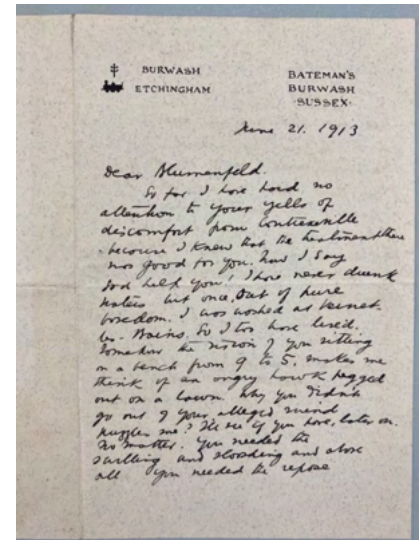 BURWASH
ETCHINGHAM
BATEMAN'S
BURWASH
·SUSSEX·
June 21. 1913
Dear Blumenfeld.
So far I have paid no
attention to your yells of
discomfort from Contrexeville
because I knew that the treatment there
was good for you. Now I say
God help you! I have never drunk
waters but once, out of pure
boredom. I was washed at Vernet-
les-Bains. So I too have lived.
Somehow the vision of you sitting
on a bench from 9 to 5, makes me
think of an angry hawk pegged
out on a lawn. Why you didn't
go out of your alleged mind
puzzles me? I'll see if you have, later on.
No matter. You needed the
swilling and sloshing and above
all you needed the repose